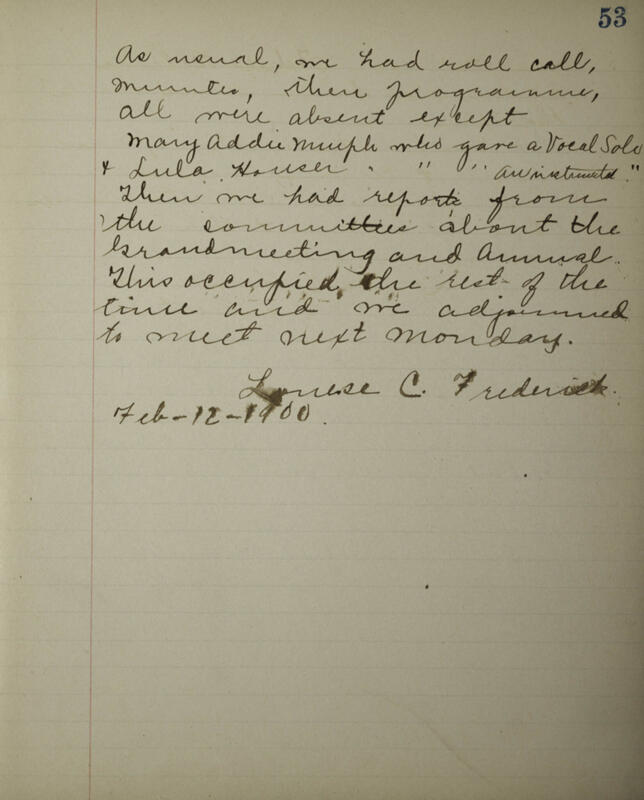 53
As usual, we had roll call,
minutes, then programme,
all were absent except
Mary Addie Murph who gave a Vocal Solo
& Lula Houser " " " an instrumtal "
Then we had reports from
the committees about the
Grandmeeting and Annual.
This occupied the rest of the
time and we adjourned
to meet next Monday.
Louise C. Frederick.
Feb-12-1900.